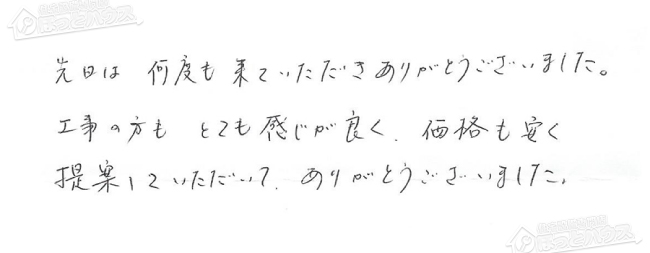 先日は 何度も 来ていただきありがとうございました。
工事の方も とても感じが良く、価格も安く
提案していただいて、ありがとうございました。